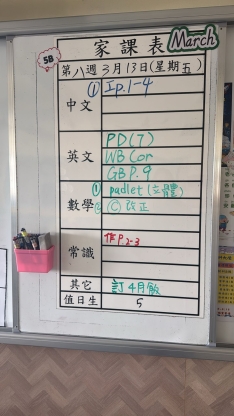 家課表 March
5B
第八週3月13日(星期五)
中文 ① Ip.1-4
英文 PD(7)
WB Cor
GB P.9
數學 ① padlet(立體)
② Ⓒ 改正
常識 作P.2-3
其它 訂4月飯
值日生 5